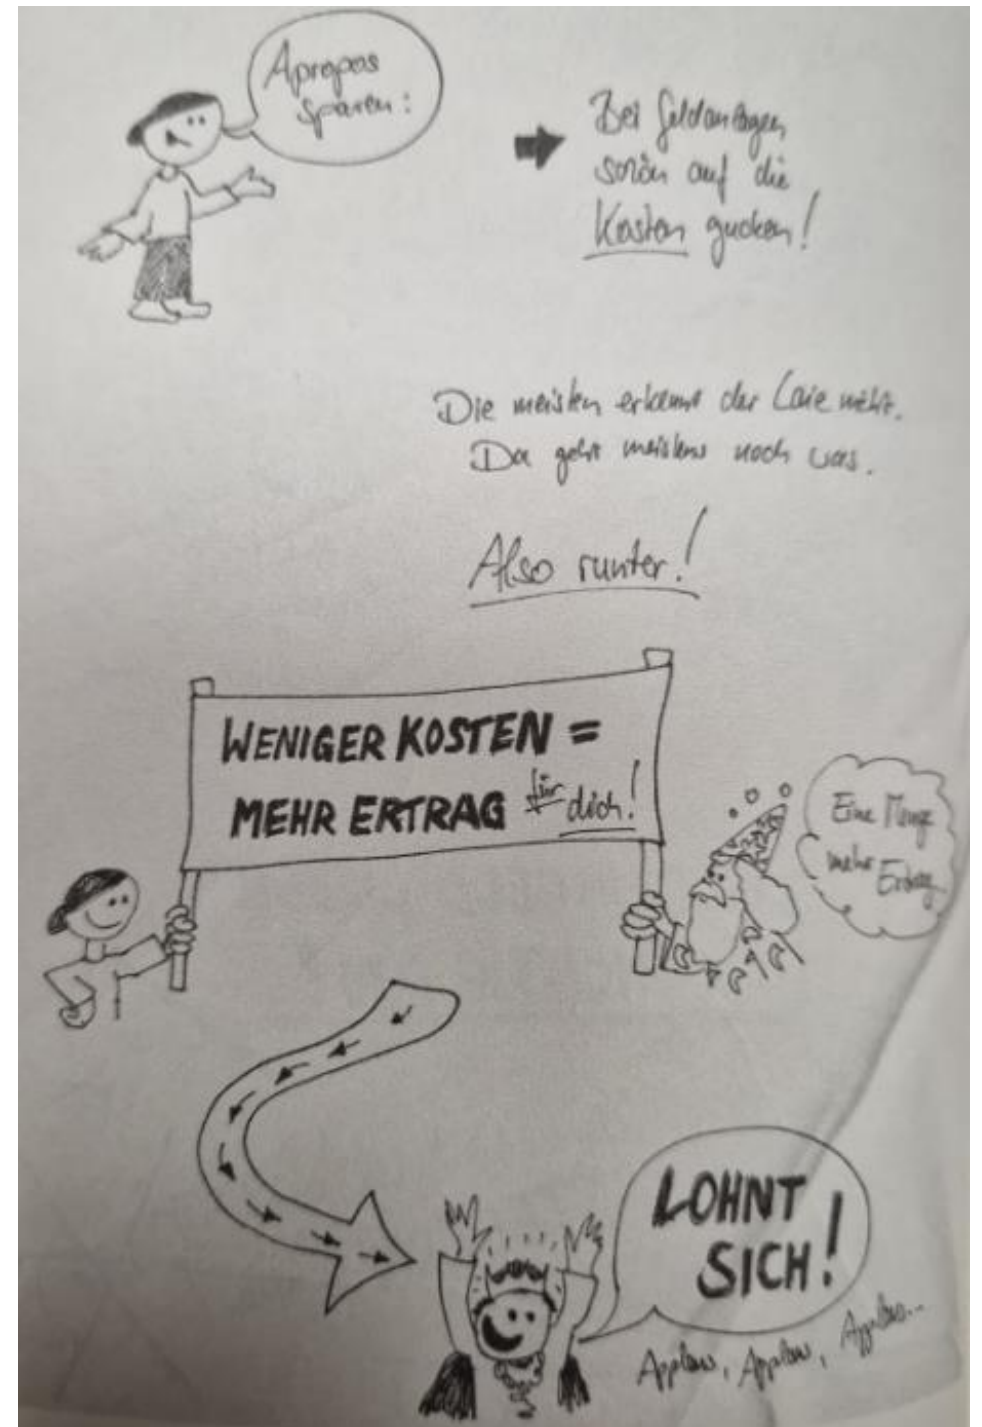 Apropos
sparen:
Bei Geldanlagen
schön auf die
Kosten gucken!
Die meisten erkennt der Laie nicht.
Da geht meistens noch was.
Also runter!
WENIGER KOSTEN =
MEHR ERTRAG für dich!
Eine Menge
mehr Ertrag
LOHNT
SICH!
Applaus, Applaus, Applaus...